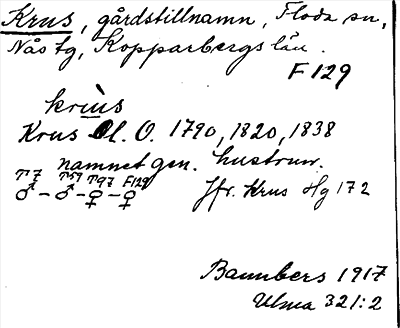 Krus, gårdstillnamn, Floda sn,
Nås fg, Kopparbergs län.
F 129
krùs
Krus Cl. O. 1790, 1820, 1838
namnet gen. hustrun.
T 7 T 59 T 97 F 129
♂ – ♂ – ♀ – ♀ Jfr. Krus Hg 172
Bannbers 1917
Ulma 321:2